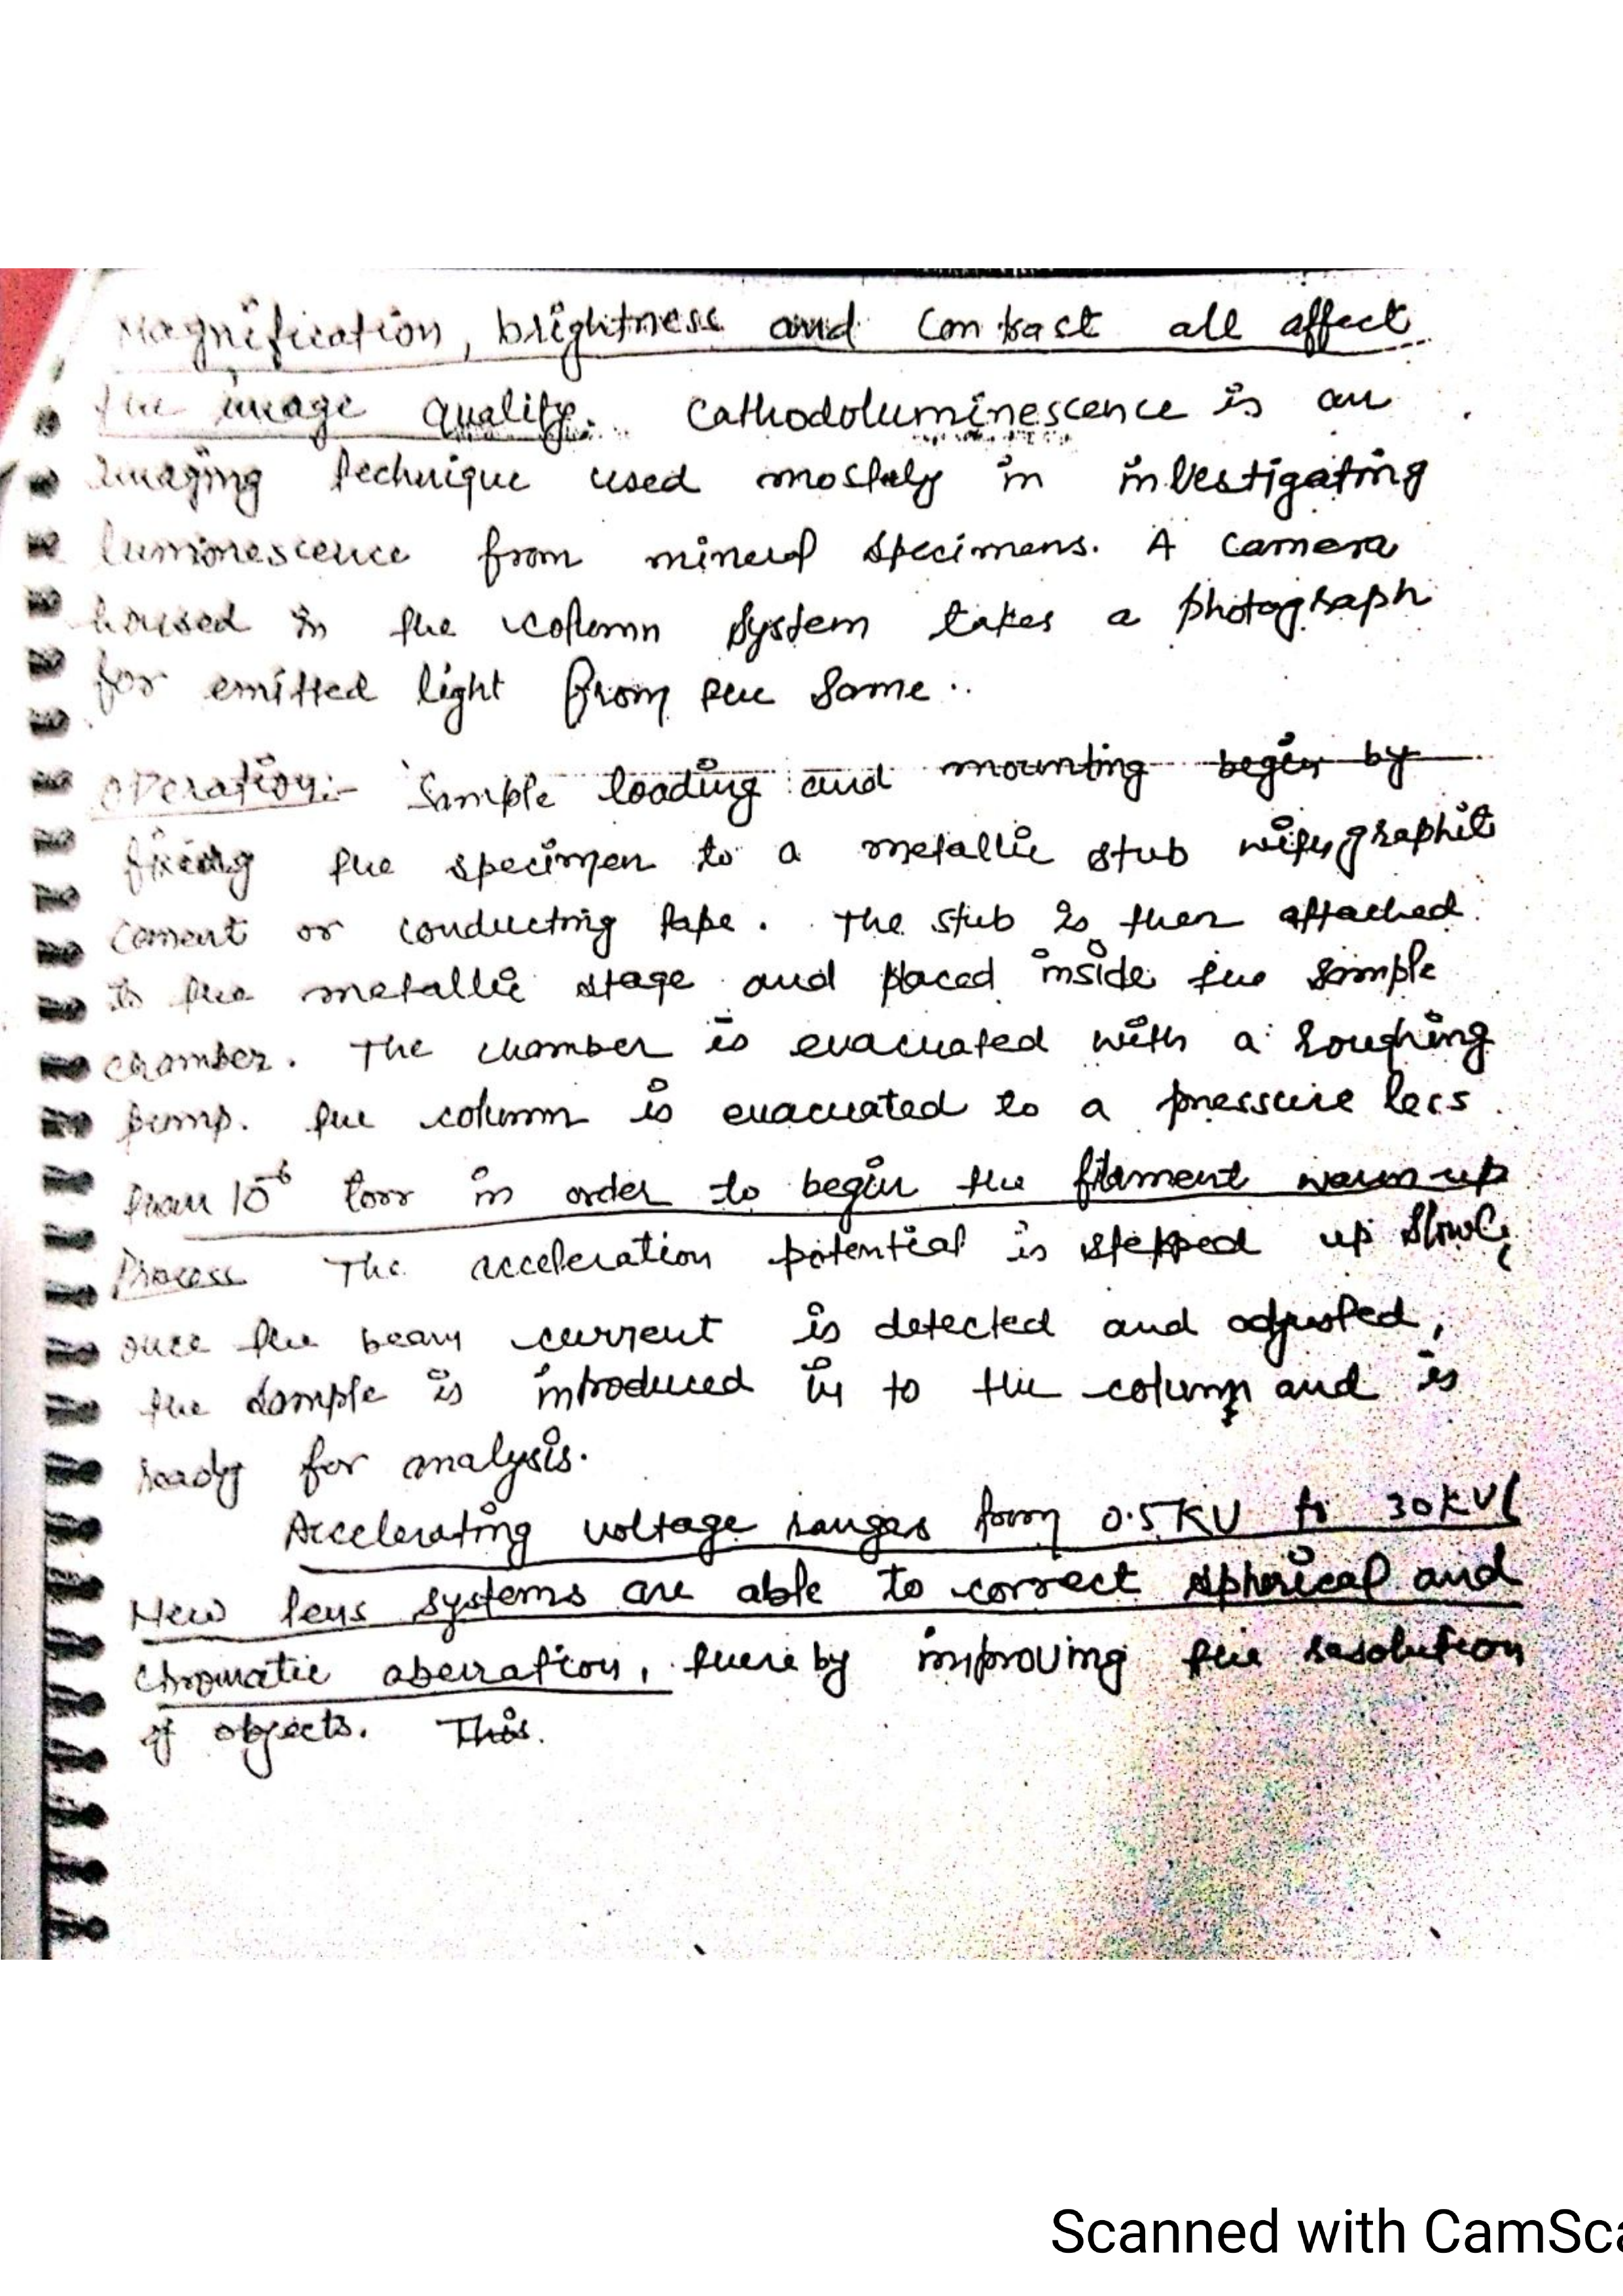 Magnification, brightness and Contrast all affect
the image quality. Cathodoluminescence is an
imaging technique used mostly in investigating
luminescence from mineral specimens. A camera
housed in the column system takes a photograph
for emitted light from the same..
Operation:- Sample loading and mounting begin by
fixing the specimen to a metallic stub with graphit
cement or conducting tape. The stub is then attached
to the metallic stage and placed inside the sample
chamber. The chamber is evacuated with a roughing
pump. The column is evacuated to a pressure less
than 10⁻⁶ torr in order to begin the filament warm-up
Process The acceleration potential is stepped up slowly
once the beam current is detected and adjusted,
the sample is introduced in to the column and is
ready for analysis.
Accelerating voltage ranges from 0.5KV to 30KV
New lens systems are able to correct spherical and
chromatic aberration, there by improving the resolution
of objects. This.
Scanned with CamSca